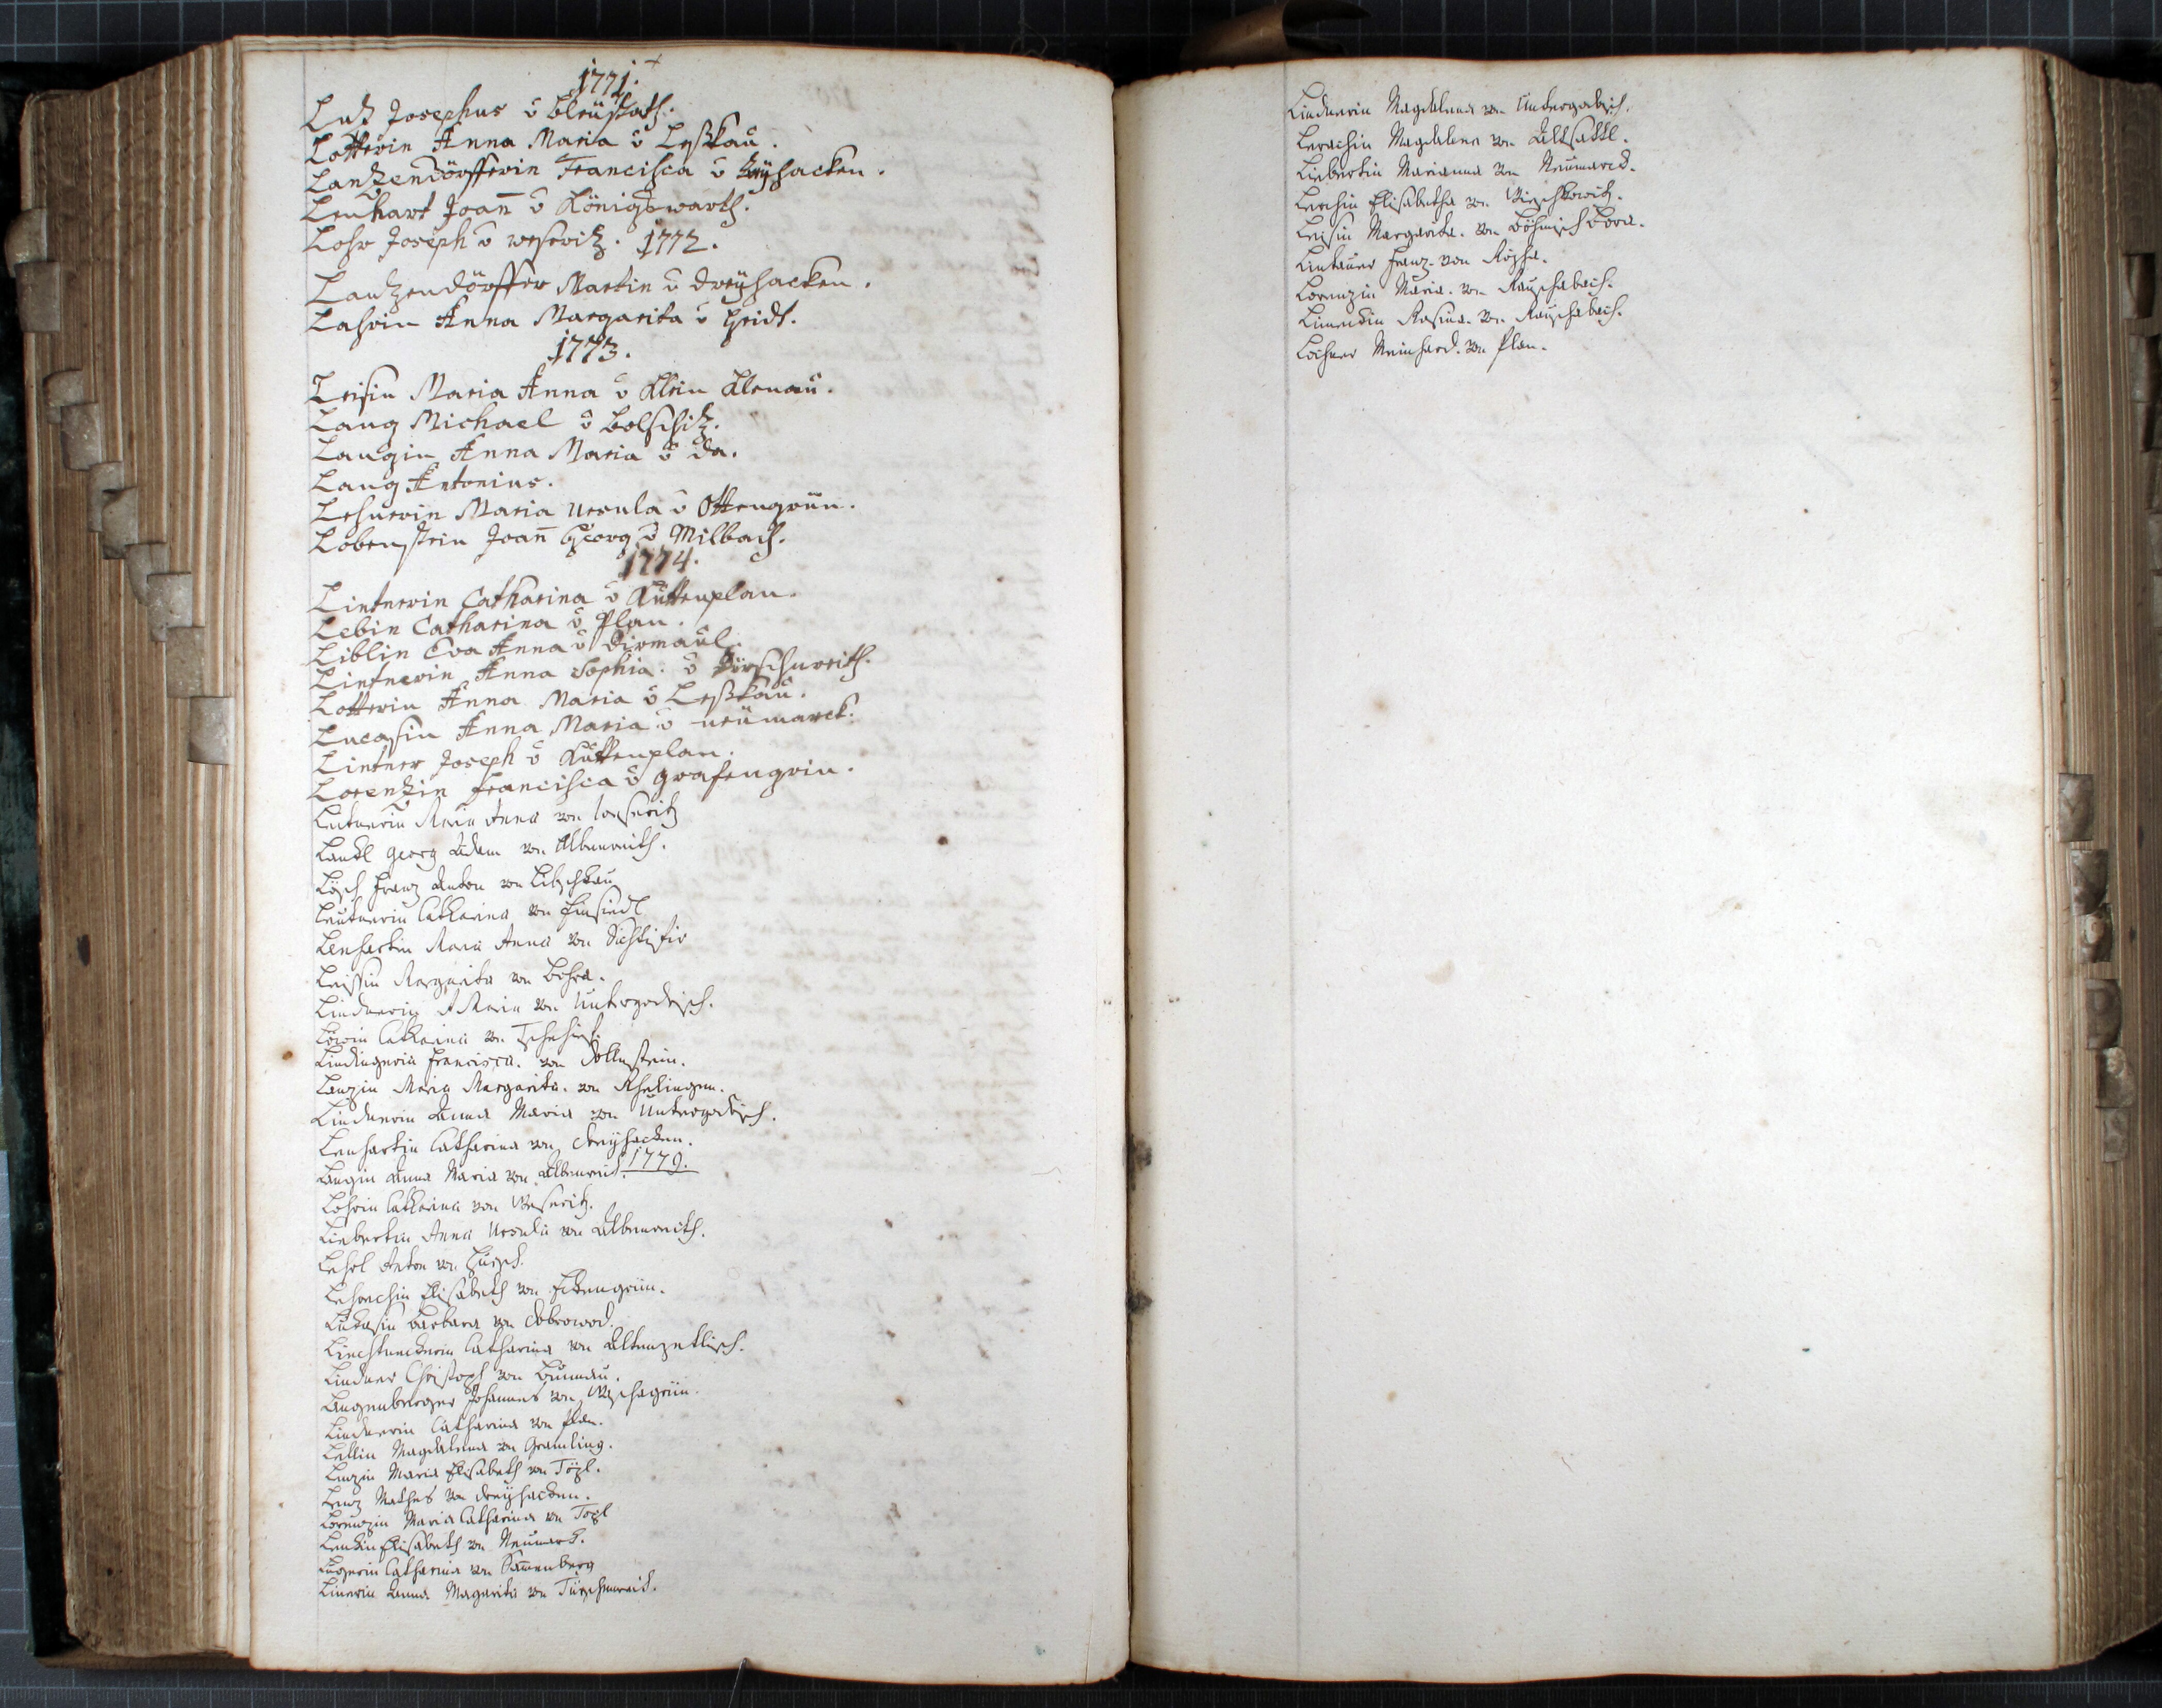 1771.
Lutz Josephus v̄ Bleÿstath.
Lotterin Anna Maria v̄ Leßkau.
Lantzendörfferin Francisca v̄ Dreÿhacken.
Lenhart Joan̄ v̄ Königswarth.
Lohr Joseph v̄ Weseritz. 1772.
Lantzendörffer Martin v̄ Dreÿhacken.
Lahrin Anna Margarita v̄ Heidt.
1773.
Leisin Maria Anna v̄ Klein Klenau.
Lang Michael v̄ Bolschitz.
Langin Anna Maria v̄ da.
Lang Antonius.
Lehnerin Maria Ursula v̄ Ottengrün.
Lobenstein Joan̄ Georg v̄ Milbach.
1774.
Lintnerin Catharina v̄ Kuttenplan.
Lebin Catharina v̄ Plan.
Liblin Eva Anna v̄ Dirmaul.
Lintnerin Anna Sophia. v̄ Dürschnreith.
Lotterin Anna Maria v̄ Leßkau.
Lucasin Anna Maria v̄ Neümarck.
Lintner Joseph v̄ Kuttenplan.
Lorentzin Francisca v̄ Grafengrin.
Leutnerin Maria Anna von Weseritz
Lankl Georg Adam von Albenreith.
Lösch Franz Anton von Litschkau
Leutnerin Catharina von Einsiedl
Lenhartin Maria Anna von
Leissin Margarita von Bohra.
Lindnerin A Maria von Untergodrisch.
Catharina von
Lindingerin Francisca. von Dollnstein.
Lenzin Maria Margarita. von
Lindnerin Anna Maria von Untergodrisch.
Lenhartin Catharina von Dreÿhacken.
Langin Anna Maria von Albenreid. 1779.
Lohrin Catharina von Weseritz.
Liebertin Anna Ursula von Albenreith.
Anton von
Elisabeth von
Lukasin Barbara von Dobrowod.
Catharina von Altenzetlisch.
Lindner Christoph von
Langenberger Johannes von
Lindnerin Catharina von Plan.
Magdalena von Gramling.
Lenzin Maria Elisabeth von Töpl.
Lenz Mathes von Dreÿhacken.
Lorenzin Maria Catharina von Topl
Elisabeth von Neumarck.
Catharina von
Linerin Anna Magarita von Türschenreid.
Lindnerin Magdalena von Untergodrisch.
Magdalena von Altsattl.
Liebertin Marianna von Neümarck.
Lerchin Elisabetha von
Leisin Margarita. von Böhmisch Bora.
Lintauer Franz. von
Lorenzin Maria. von Rauschabach.
Rosina. von Rauschabach.
Lochner Meinhard. von Plan.